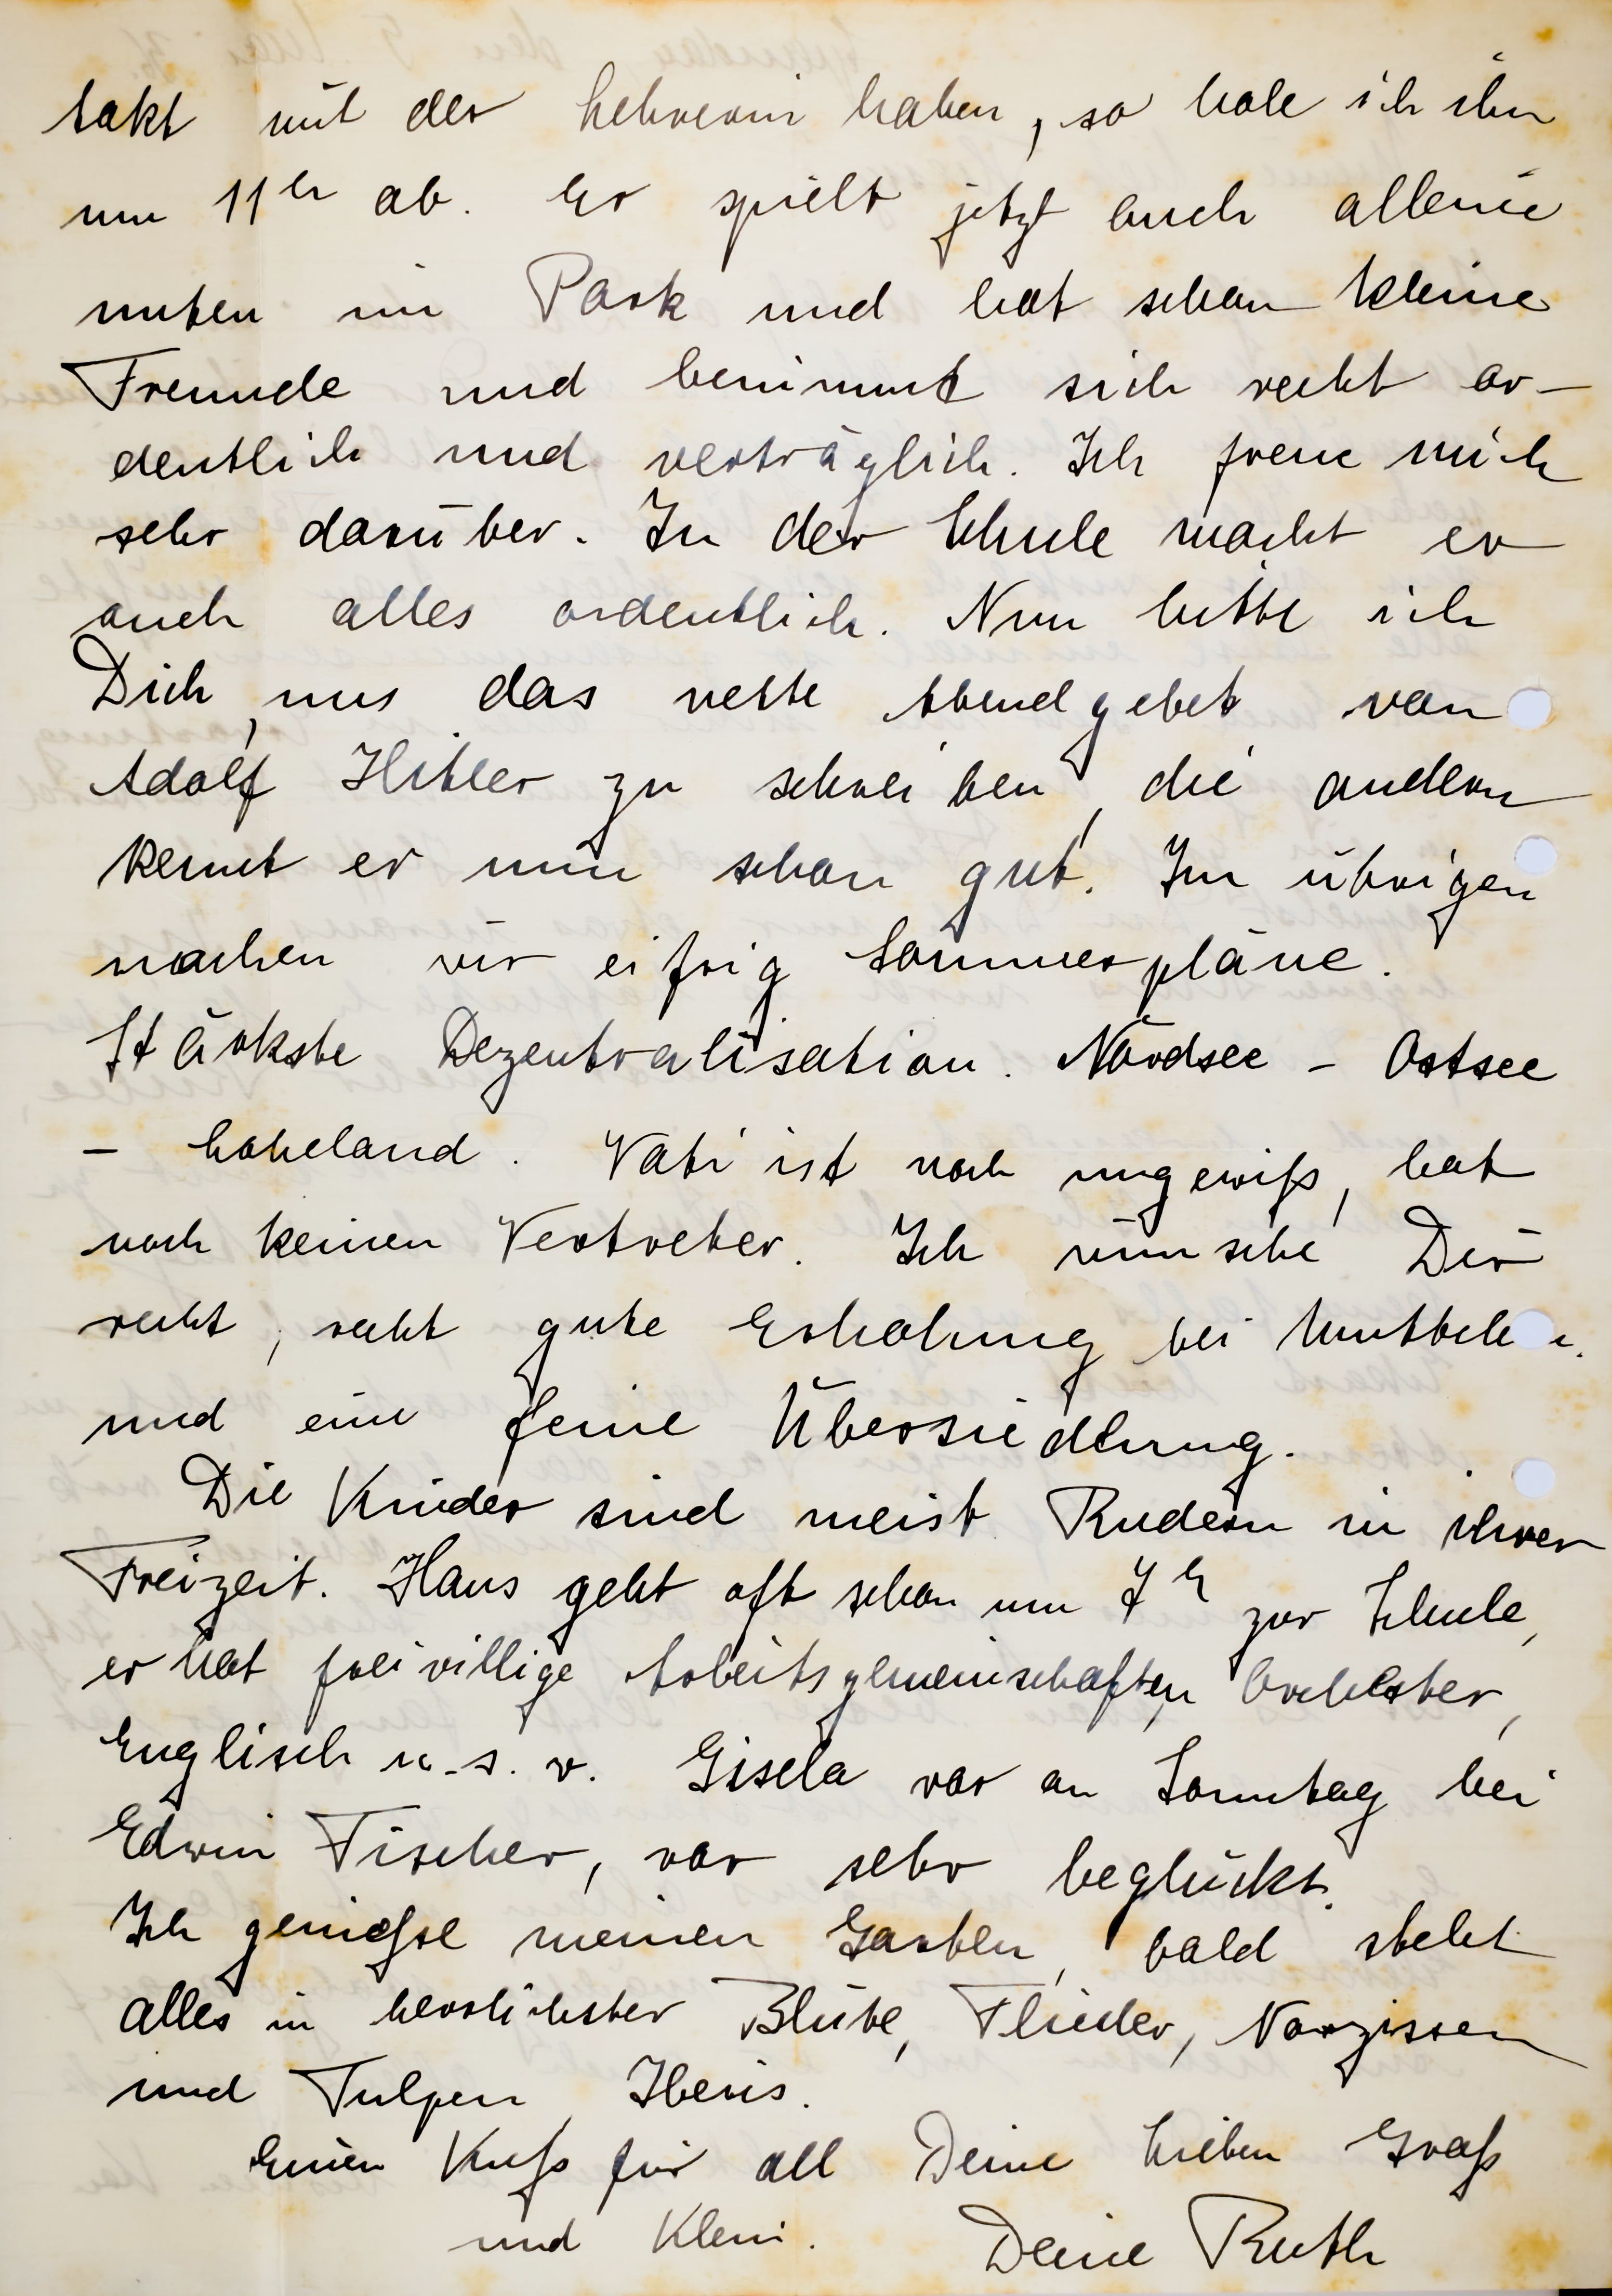 takt mit der Lehrerin haben, so hole ich ihn
um 11h ab. Er spielt jetzt auch alleine
unten im Park und hat schon kleine
Freunde und benimmt sich recht or-
dentlich und verträglich. Ich freue mich
sehr darüber. In der Schule macht er
auch alles ordentlich. Nun bitte ich
Dich, uns das nette Abendgebet von
Adolf Hitler zu schreiben, die andern
kennt er nun schon gut. Im übrigen
machen wir eifrig Sommerpläne.
Stärkste Dezentralisation. Nordsee - Ostsee
- Loheland. Vati ist noch ungewiß, hat
noch keinen Vertreter. Ich wünsche Dir
recht, recht gute Erholung bei Muttchen
und eine feine Übersiedlung.
Die Kinder sind meist Rudern in ihrer
Freizeit. Hans geht oft schon um 7h zur Schule,
er hat freiwillige Arbeitsgemeinschaften, Orchester,
Englisch u.s.w. Gisela war am Sonntag bei
Edwin Fischer, war sehr beglückt.
Ich genieße meinen Garten, bald steht
alles in herrlichster Blüte, Flieder, Narzissen
und Tulpen, Iberis.
Einen Kuß für all Deine Lieben Groß
und Klein. Deine Ruth